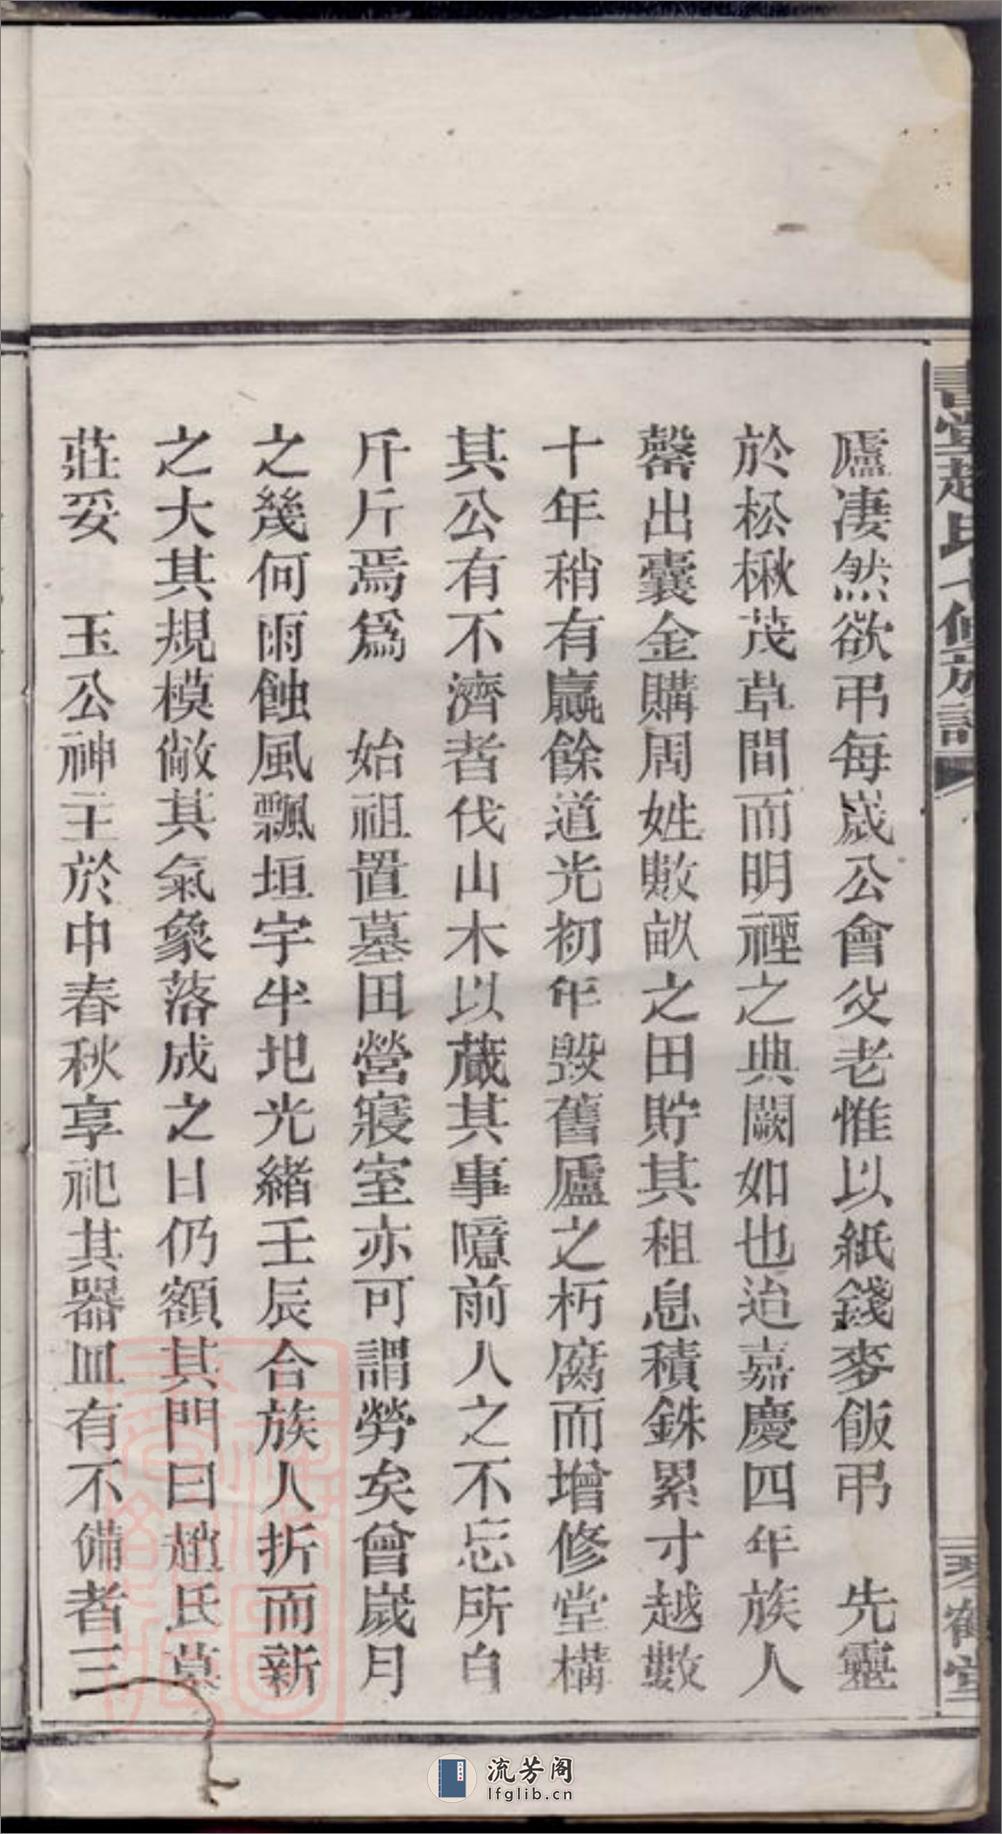 廬凄然欲弔每歲公會父老惟以紙錢麥飯弔　先靈
於松楸茂草間而明禋之典闕如也迨嘉慶四年族人
罄出囊金購周姓數畝之田貯其租息積銖累寸越數
十年稍有贏餘道光初年毀舊廬之朽腐而增修堂構
其公有不濟者伐山木以蕆其事噫前人之不忘所自
斤斤焉爲　始祖置墓田營寢室亦可謂勞矣曾歲月
之幾何雨蝕風飄垣宇半圯光緒壬辰合族人折而新
之大其規模敞其氣象落成之日仍額其門曰趙氏墓
莊妥　玉公神主於中春秋享祀其器皿有不備者三
琴鶴堂
流芳阁
lfglib.cn